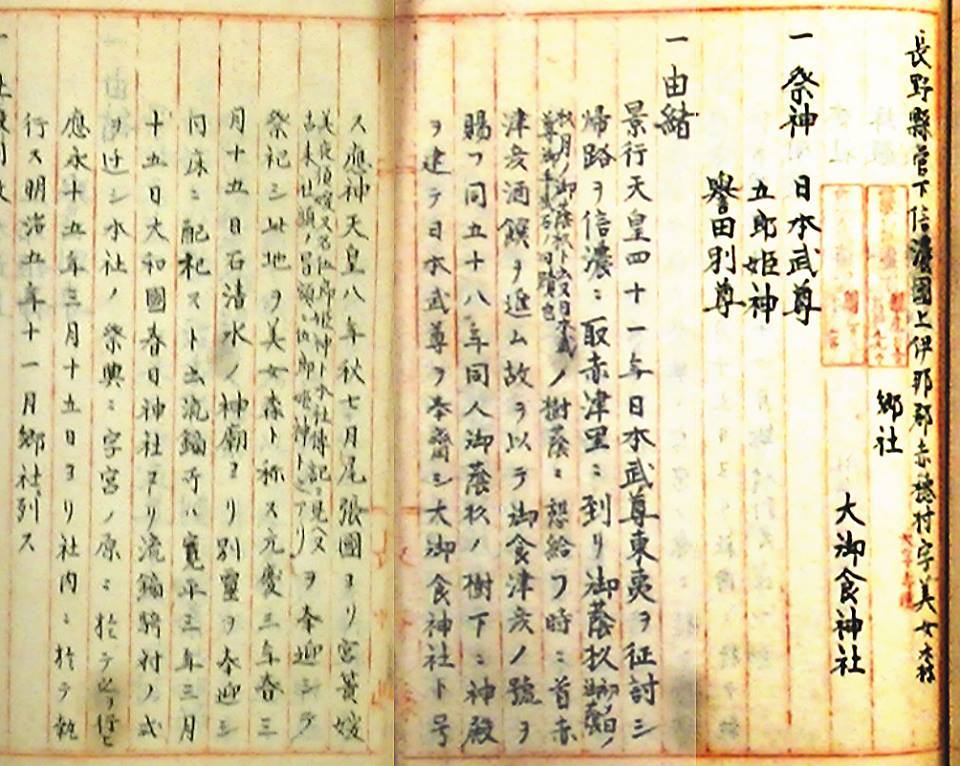 長野縣管下信濃國上伊那郡赤穂村字美女ヶ森
郷社
大御食神社
一祭神 日本武尊
五郎姫神
譽田別尊
一由緒
景行天皇四十一年日本武尊東夷ヲ征討シ
帰路ヲ信濃ニ取赤津里ニ到リ御蔭杉
ノ樹蔭ニ憩給フ時ニ首赤
津彦酒饌ヲ進ム故ヲ以テ御食津彦ノ號ヲ
賜フ同五十八年同人御蔭杉ノ樹下ニ神殿
ヲ建テ日本武尊ヲ奉齋シ大御食神社ト号
ス應神天皇八年秋七月尾張國ヨリ宮簀媛
ヲ奉迎シテ
祭祀シ此地ヲ美女森ト称ス元慶三年春三
月十五日石清水ノ神廟ヨリ別靈ヲ奉迎シ
同床ニ配祀ス 流鏑 ハ寛平三年三月
十五日大和國春日神社ヨリ流鏑騎射ノ式
ヲ迁シ本社ノ祭典ニ字宮ノ原ニ於テ之ヲ行ヒ
應永十五年三月十五日ヨリ社内ニ於テ執
行ス明治五年十一月郷社ニ列ス